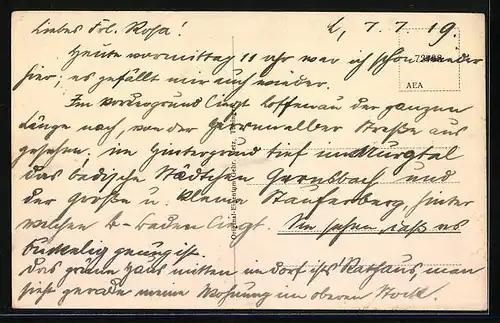 Liebes Frl. Rosa!
L, 7. 7. 19.
Heute vormittag 11 Uhr war ich schon wieder
hier; es gefällt mir auch wieder.
AEA
Im Vordergrund liegt Loffenau der ganzen
Länge nach, von der Herrenalber Straße aus
gesehen, im Hintergrund tief im Murgtal
das badische Städtchen Gernsbach und
der Große u. kleine Staufenberg, hinter
welchem B-Baden liegt. Sie sehen, daß es
buckelig genug ist
Das große Haus mitten im Dorf ist's Rathaus, man
sieht gerade meine Wohnung im oberen Stock.